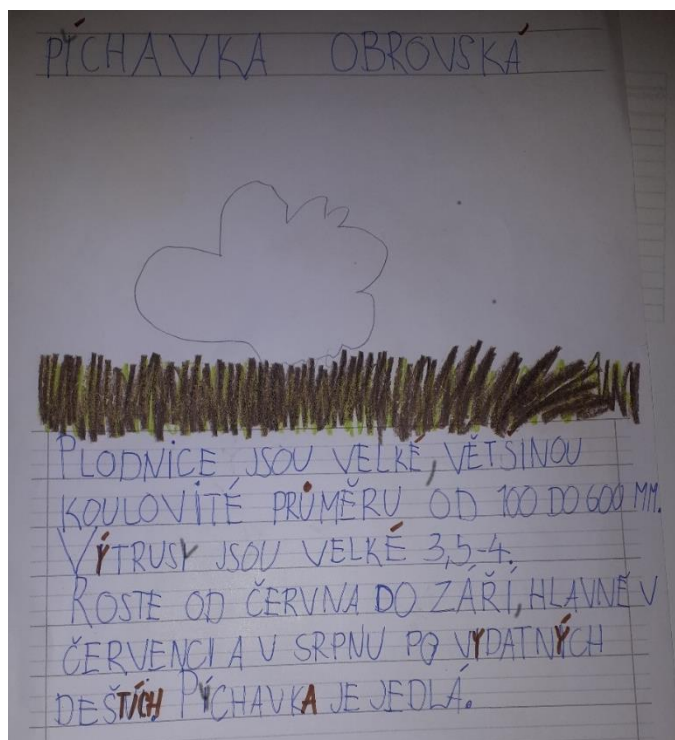 PÝCHAVKA OBROVSKÁ
PLODNICE JSOU VELKÉ, VĚTŠINOU
KOULOVITÉ PRŮMĚRU OD 100 DO 600 MM.
VÝTRUSY JSOU VELKÉ 3,5-4.
ROSTE OD ČERVNA DO ZÁŘÍ, HLAVNĚ V
ČERVENCI A V SRPNU PO VYDATNÝCH
DEŠTÍCH PÝCHAVKA JE JEDLÁ.